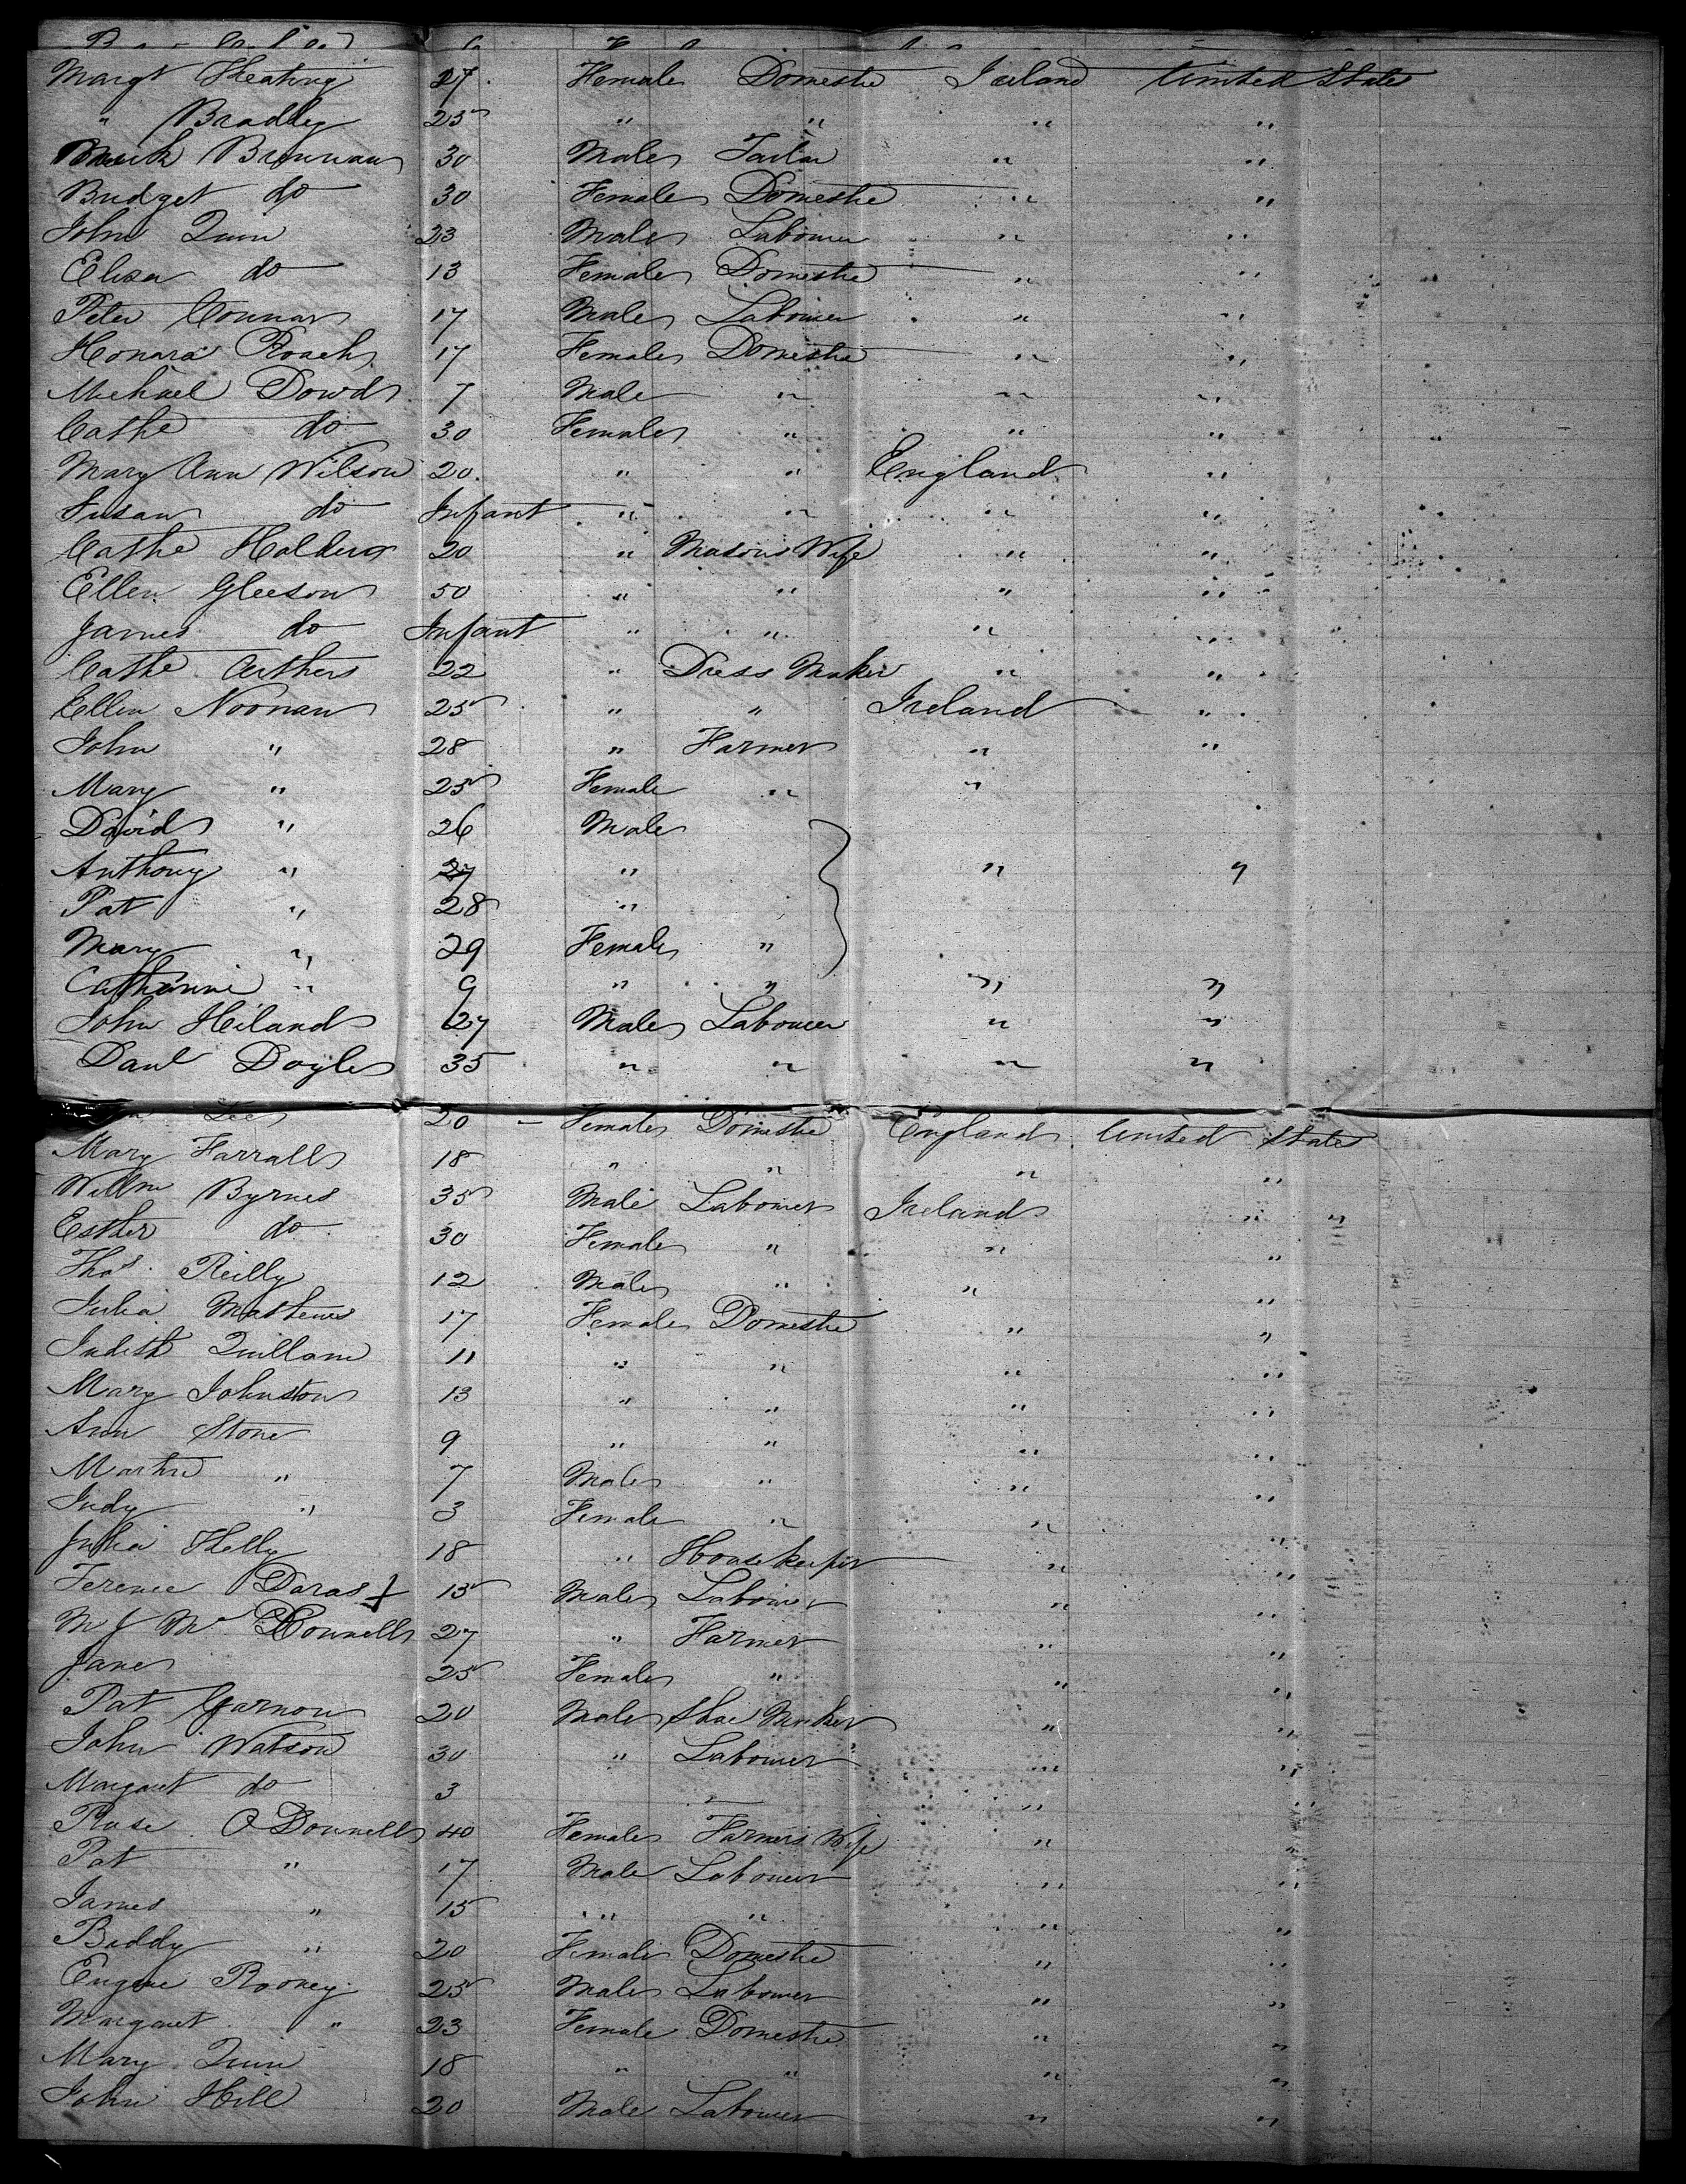 Margt Keating 27 Female Domestic Ireland United States
" Bradley 25 " " " "
Brennan 30 Male Tailor " "
Bridget do 30 Female Domestic " "
John Quin 23 Male Labourer " "
Eliza do 13 Female Domestic " "
Peter Connar 17 Male Labourer " "
Honara Roach 17 Female Domestic " "
Michael Dowd 7 Male " " "
Cathe do 30 Female " " "
Mary Ann Wilson 20 " " England "
Susan do Infant " " " "
Cathe 20 " Masons Wife " "
Ellen Gleeson 50 " " " "
James do Infant " " " "
Cathe Arthers 22 " Dress Maker " "
Ellen Noonan 25 " " Ireland "
John " 28 " Farmer " "
Mary " 25 Female " "
David " 26 Male
Anthony " 27 " " "
Pat " 28 "
Mary " 29 Female "
Catharine " 9 " " " "
John Hiland 27 Male Labourer " "
Danl Doyle 35 " " " "
Lee 20 Female Domestic England United States
Mary Farrall 18 " " " "
Willm Byrnes 35 Male Labourer Ireland " "
Esther do 30 Female " " "
Thos Reilly 12 Male " " "
Julia Mathews 17 Female Domestic " "
Judith Quillan 11 " " " "
Mary Johnston 13 " " " "
Ann Stone 9 " " " "
Martin " 7 Male " " "
Judy " 3 Female " " "
Julia Kelly 18 " Housekeeper " "
Terence 15 Male Labourer " "
Mc Donnell 27 " Farmer " "
Jane 25 Female " " "
Pat Garnon 20 Male Shoe Maker " "
John Watson 30 " Labourer " "
Margaret do 3 " " "
Rose O Donnell 40 Female Farmers Wife " "
Pat " 17 Male Labourer " "
James " 15 " " " "
Biddy " 20 Female Domestic " "
Eugene Rooney 25 Male Labourer " "
Margaret " 23 Female Domestic " "
Mary Quin 18 " " " "
John Hill 20 Male Labourer " "